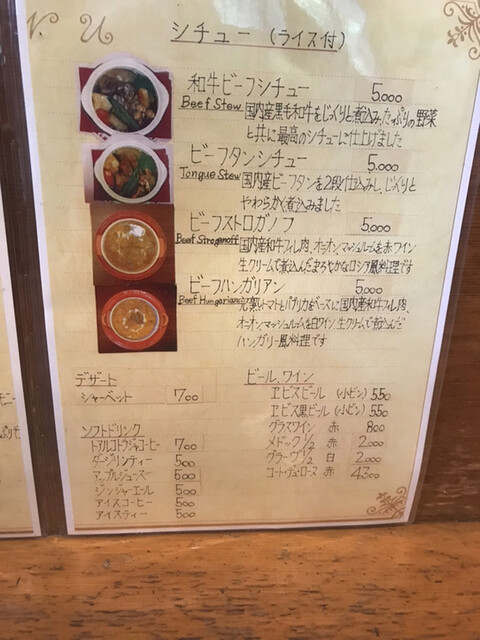 N U
シチュー (ライス付)
和牛ビーフシチュー 5,000
Beef Stew 国内産黒毛和牛をじっくりと煮込み、たっぷりの野菜
と共に最高のシチューに仕上げました
ビーフタンシチュー 5,000
Tongue Stew 国内産ビーフタンを2段仕込みし、じっくりと
やわらかく煮込みました
ビーフストロガノフ 5,000
Beef Stroganoff 国内産和牛フィレ肉、オニオン、マッシュルームを赤ワイン
生クリームで煮込んだまろやかなロシア風料理です
ビーフハンガリアン 5,000
Beef Hungarian 完熟トマトとパプリカをベースに国内産和牛フィレ肉、
オニオン、マッシュルームを白ワイン、生クリームで煮込んだ
ハンガリー風料理です
デザート
シャーベット 700
ソフトドリンク
トアルコトラジャコーヒー 700
ダージリンティー 500
アップルジュース 500
ジンジャーエール 500
アイスコーヒー 500
アイスティー 500
ビール、ワイン
エビスビール (小ビン) 550
エビス黒ビール (小ビン) 550
グラスワイン 赤 800
メドック 1/2 赤 2,000
グラーヴ 1/2 白 2,000
コート・デュ・ローヌ 赤 4,300